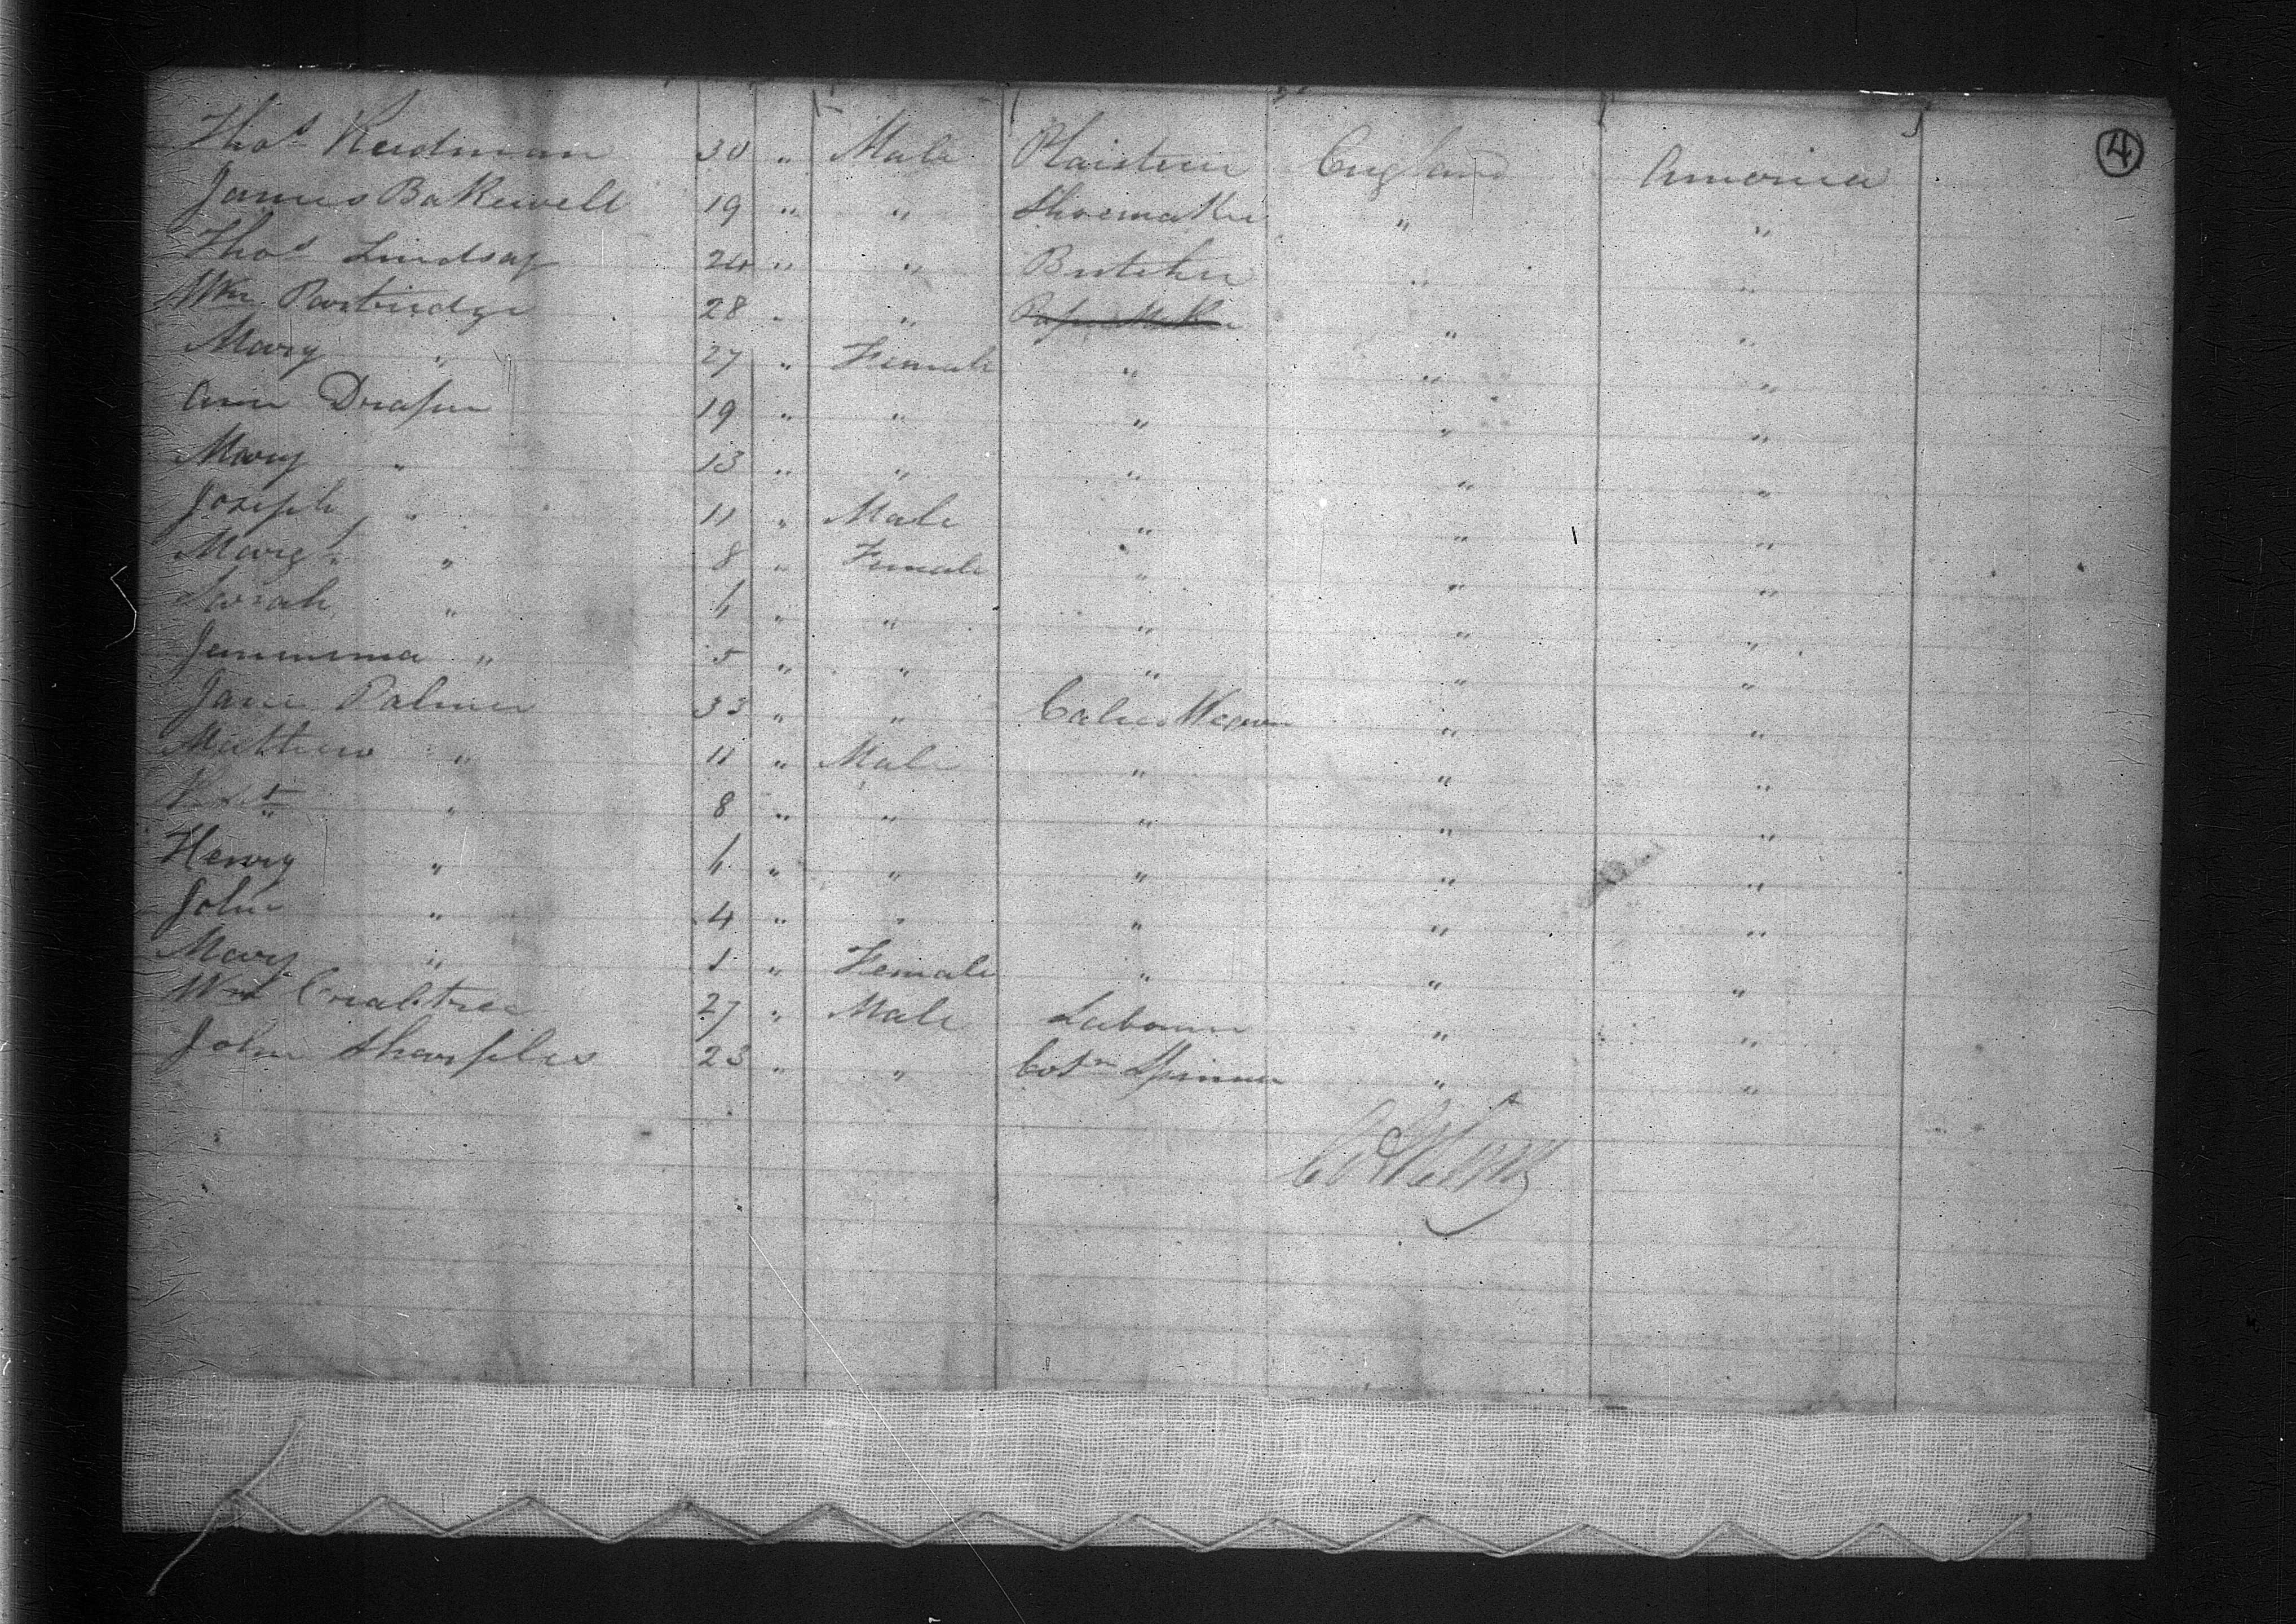 4
Thos Readman 30 " Male Plaisterer England America
James Bakewell 19 " " Shoemaker " "
Thos Lindsay 24 " " Butcher " "
Wm Partridge 28 " " Paper Maker " "
Mary " 27 " Female " " "
Ann Draper 19 " " " " "
Mary " 13 " " " " "
Joseph " 11 " Male " " "
Margt " 8 " Female " " "
Sarah " 6 " " " " "
Jemmima " 5 " " " " "
Jane Palmer 33 " " Calico Weaver " "
Matthew " 11 " Male " " "
Robt " 8 " " " " "
Henry " 6 " " " " "
John " 4 " " " " "
Mary " 1 " Female " " "
Wm Crabtree 27 " Male Labourer " "
John Sharples 23 " " Cotn Spinner " "